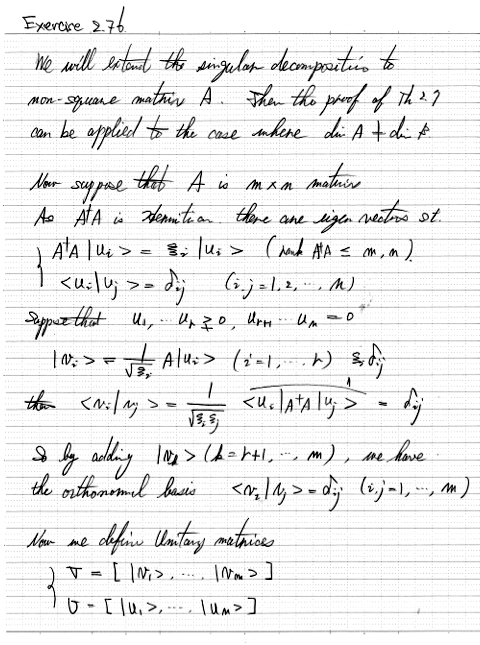 Exercise 2.76
We will extend the singular decomposition to
non-square matrix A. Then the proof of Th 2.7
can be applied to the case where dim A ≠ dim B
Now suppose that A is m×n matrix
As A†A is Hermitian there are eigen vectors st.
A†A |u_i> = ξ_i |u_i> (rank A†A ≤ m, n)
<u_i|u_j> = δ_ij (i, j = 1, 2, ..., n)
Suppose that u_1, ... u_r ≩ 0, u_r+1 ... u_n = 0
|v_i> = 1/√ξ_i A|u_i> (i=1, ... r) ξ_i δ_ij
then <v_i|v_j> = 1/√ξ_i ξ_j <u_i|A†A|u_j> = δ_ij
So by adding |v_k> (k = r+1, ..., m), we have
the orthonormal basis <v_i|v_j> = δ_ij (i, j = 1, ..., m)
Now we define Unitary matrices
V = [ |v_1>, ... |v_m> ]
U = [ |u_1>, ... |u_n> ]